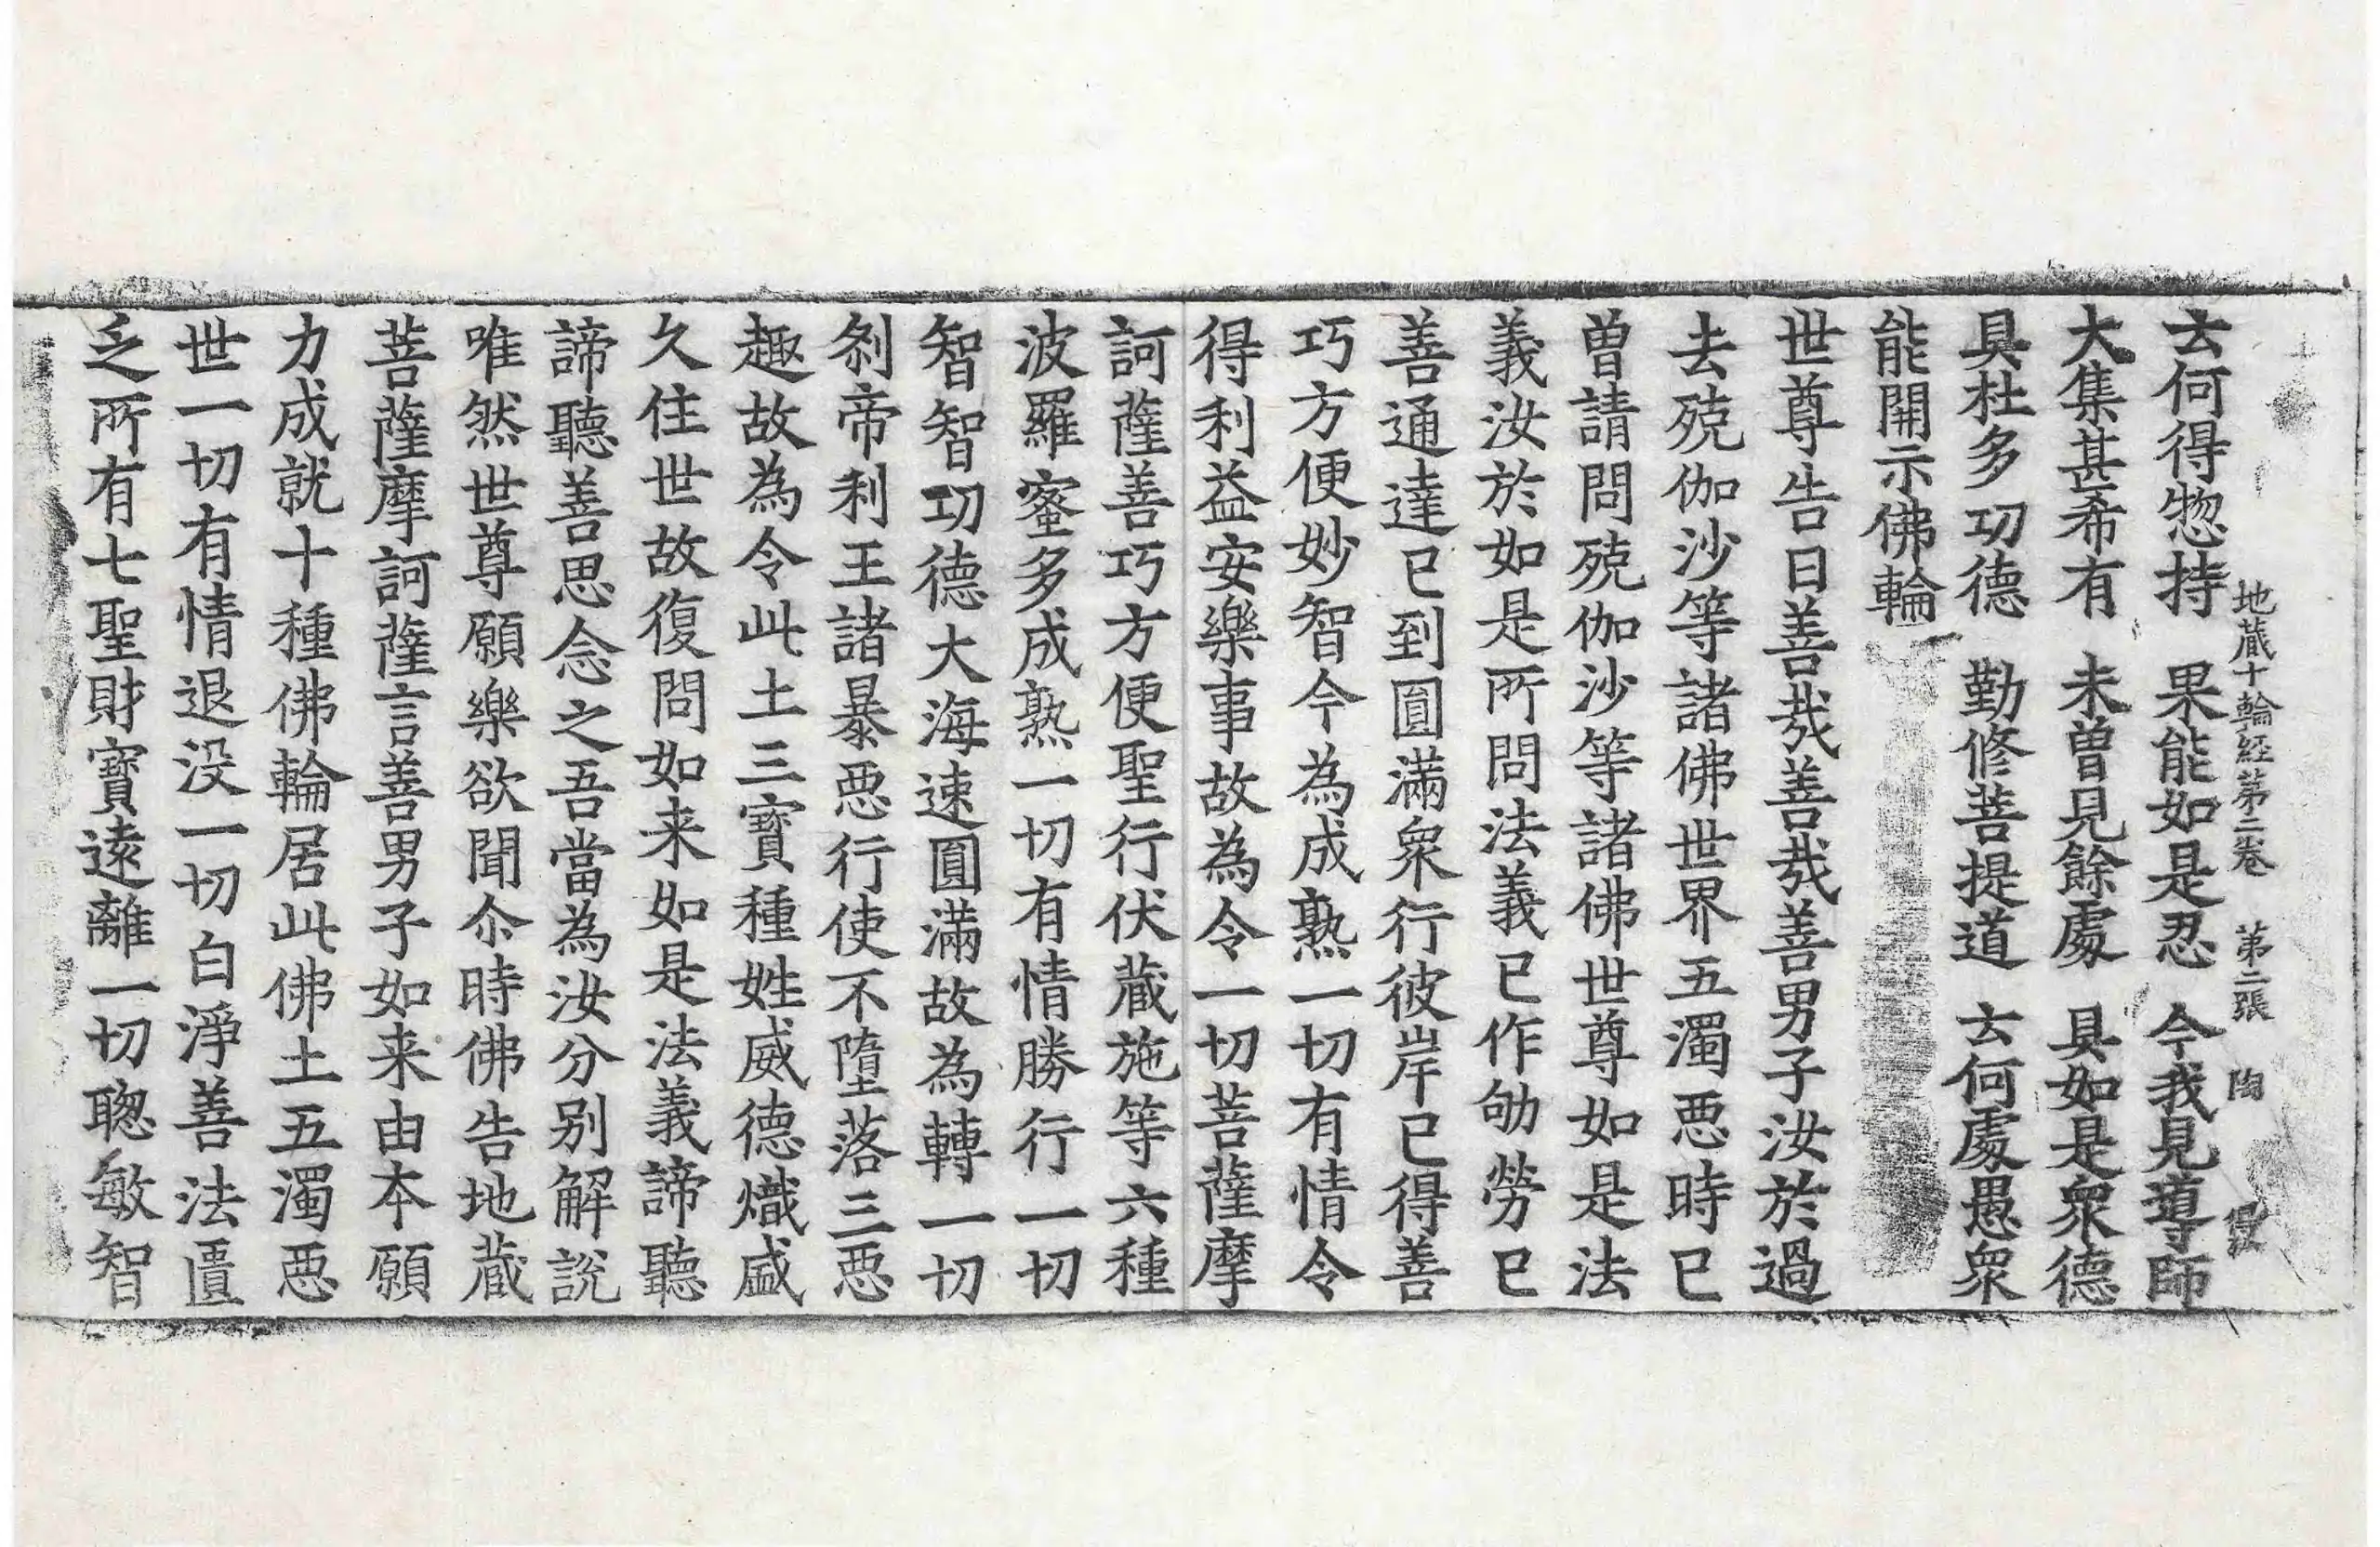 地蔵十輪経第二卷　第二張　陶
云何得惣持　果能如是忍　今我見導師
大集甚希有　未曽見餘䖏　具如是衆德
具杜多功德　勤修菩提道　云何䖏愚衆
能開示佛輪
世尊告曰善㢤善㢤善男子汝於過
去殑伽沙等諸佛世界五濁惡時已
曽請問殑伽沙等諸佛世尊如是法
義汝於如是所問法義已作劬勞已
善通達已到圓滿衆行彼岸已得善
巧方便妙智今為成熟一切有情令
得利益安樂事故為令一切菩薩摩
訶薩善巧方便聖行伏蔵施等六種
波羅蜜多成熟一切有情勝行一切
智智功德大海速圓滿故為轉一切
刹帝利王諸暴惡行使不墮落三惡
趣故為令此土三寳種姓威德熾盛
久住世故復問如来如是法義諦聽
諦聽善思念之吾當為汝分别解說
唯然世尊願樂欲聞尒時佛告地蔵
菩薩摩訶薩言善男子如来由本願
力成就十種佛輪居此佛土五濁惡
世一切有情退没一切白淨善法匱
乏所有七聖財寳遠離一切聦敏智